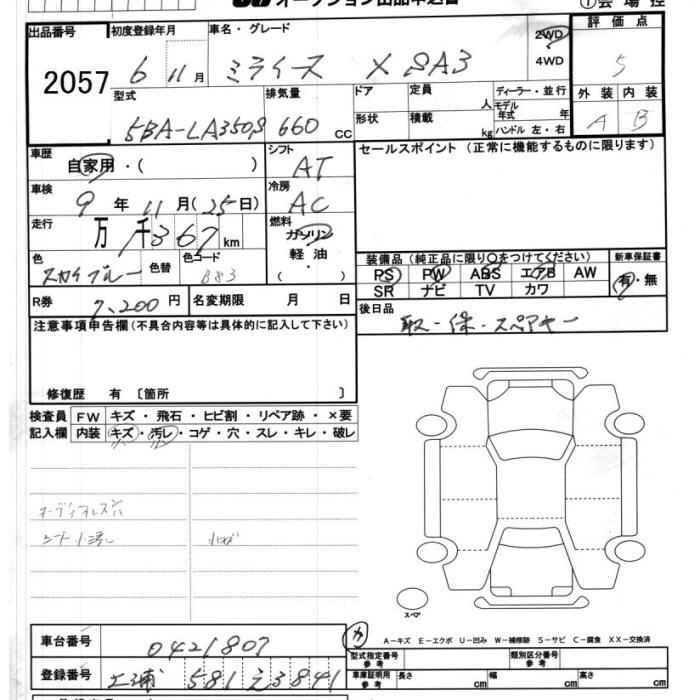 オークション出品申込書 ①会場控
出品番号 初度登録年月 車名・グレード 2WD 4WD 評価点
2057 6 11月 ミライース X SA3 5
型式 排気量 ドア 定員 人 ディーラー・並行 外装 内装
5BA-LA350S 660 cc 形状 積載 kg モデル年式 年 ハンドル 左・右 A B
車歴 シフト セールスポイント (正常に機能するものに限ります)
自家用・( ) AT
車検 冷房
9年 11月(25日) AC
走行 燃料
万 千 1367 km ガソリン
色 色替 色コード 軽油 装備品 (純正品に限り○をつけてください) 新車保証書
スカイブルー B83 ( ) PS PW ABS エアB AW 有・無
SR ナビ TV カワ
R券 7,200円 名変期限 月 日 後日品
取・保・スペアキー
注意事項申告欄(不具合内容等は具体的に記入して下さい)
修復歴 有 〔箇所 〕
検査員 FW キズ・飛石・ヒビ割・リペア跡・×要
記入欄 内装 キズ・汚レ・コゲ・穴・スレ・キレ・破レ
オーディオレス
シート小汚レ 小キズ
スペア
車台番号 0421807 カ A-キズ E-エクボ U-凹み W-補修跡 S-サビ C-腐食 XX-交換済
型式指定番号 参考 類別区分番号 参考
登録番号 土浦 581 え 3841 車庫証明用 参考 長さ cm 幅 cm 高さ cm